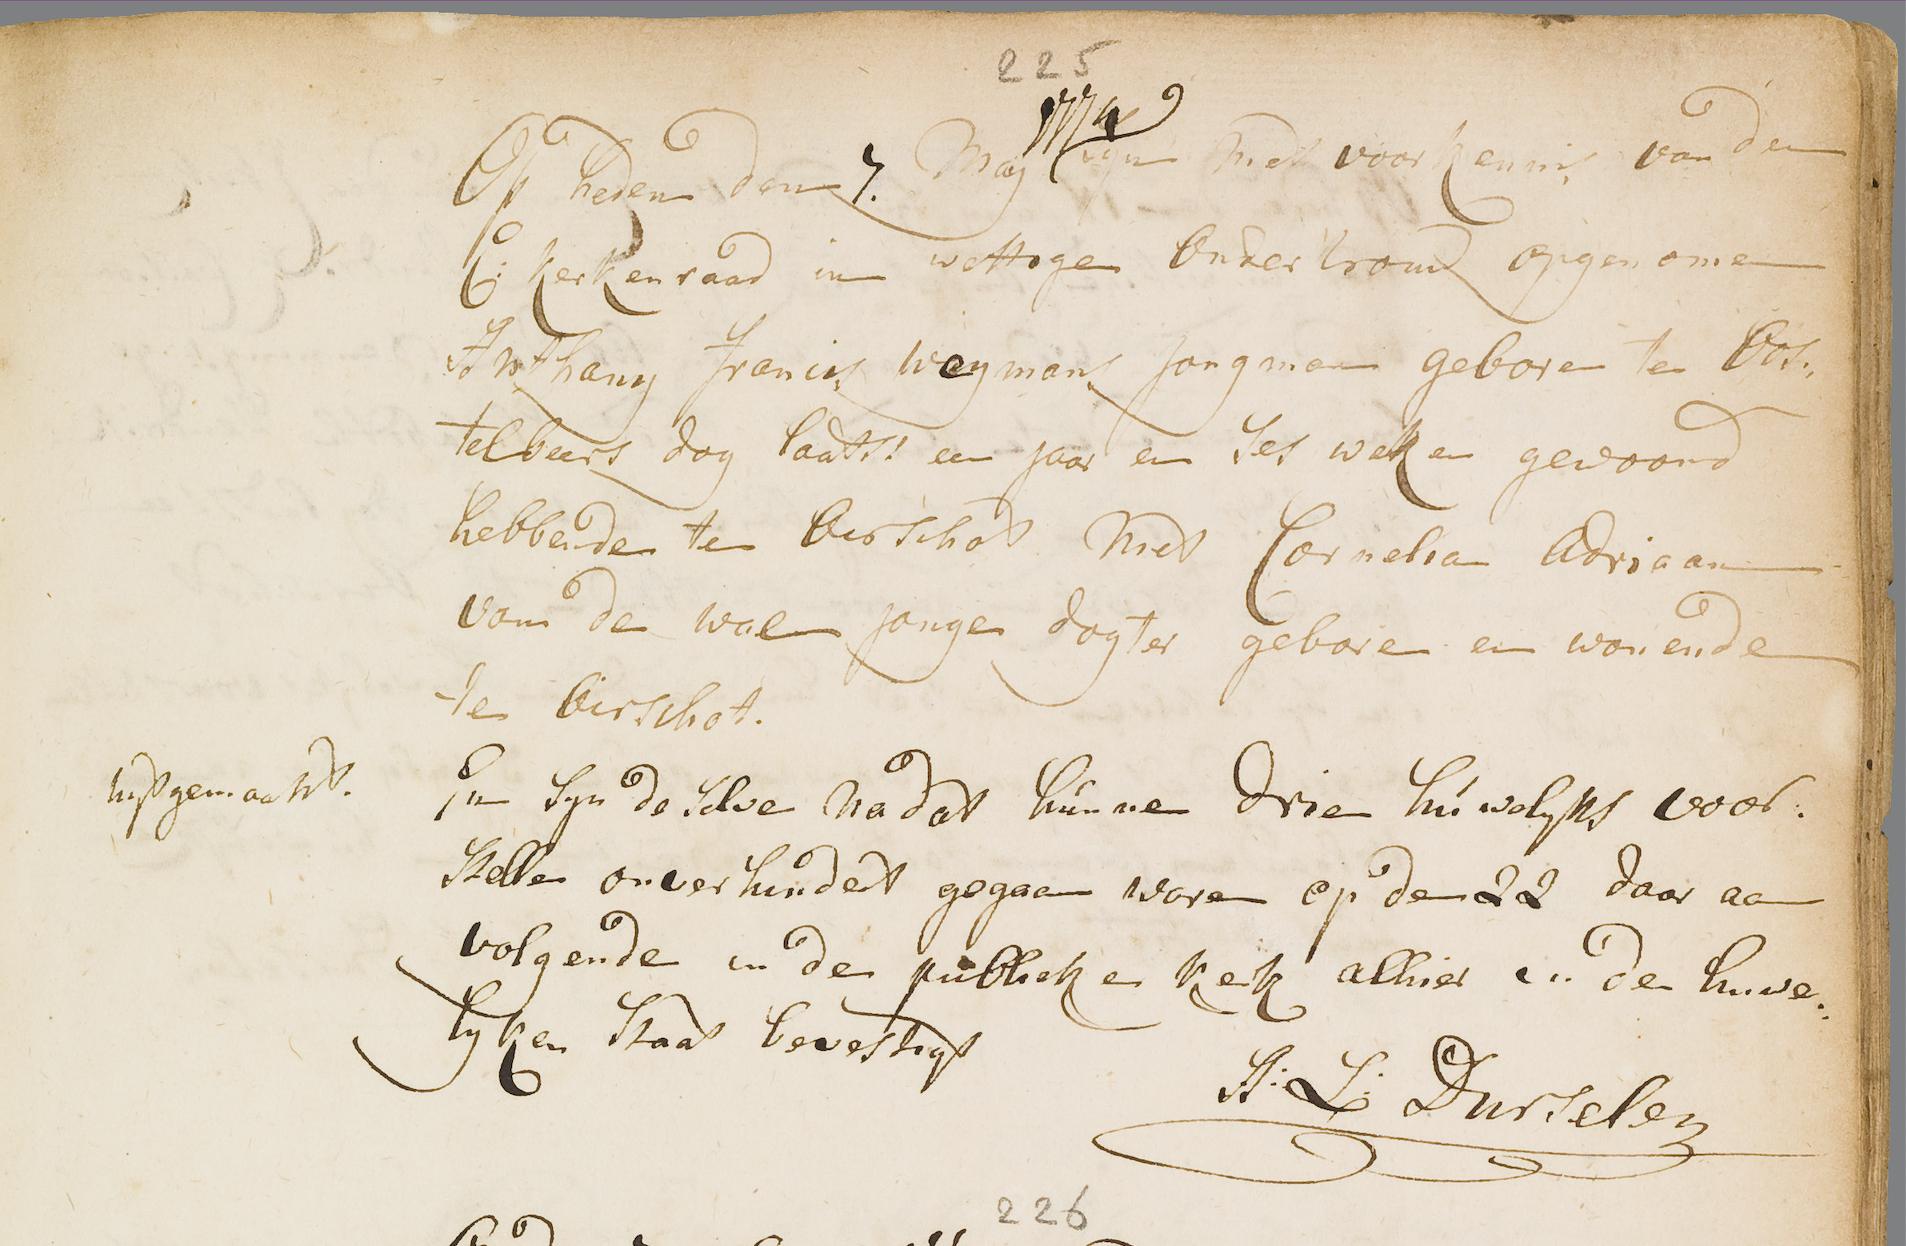 225
1774
Op heden den 7. May syn met voorkennis van den
E: kerkenraad in wettige Ondertrouw opgenomen
Anthony Francis Weymans Jongman gebore te Oos„
telbeers dog laatst een jaar en ses weken gewoond
hebbende te Oirschot Met Cornelia Adriaan
van de wal jonge dogter gebore en wonende
te Oirschot.
uijtgemaakt. En syn de selve na dat hunne drie huwelyks voor:
stelle onverhindert gegaan waren op den 22 daar aan
volgende in de publieke kerk alhier in de huwe„
lyken staat bevestigt
A: L: Durselen
226